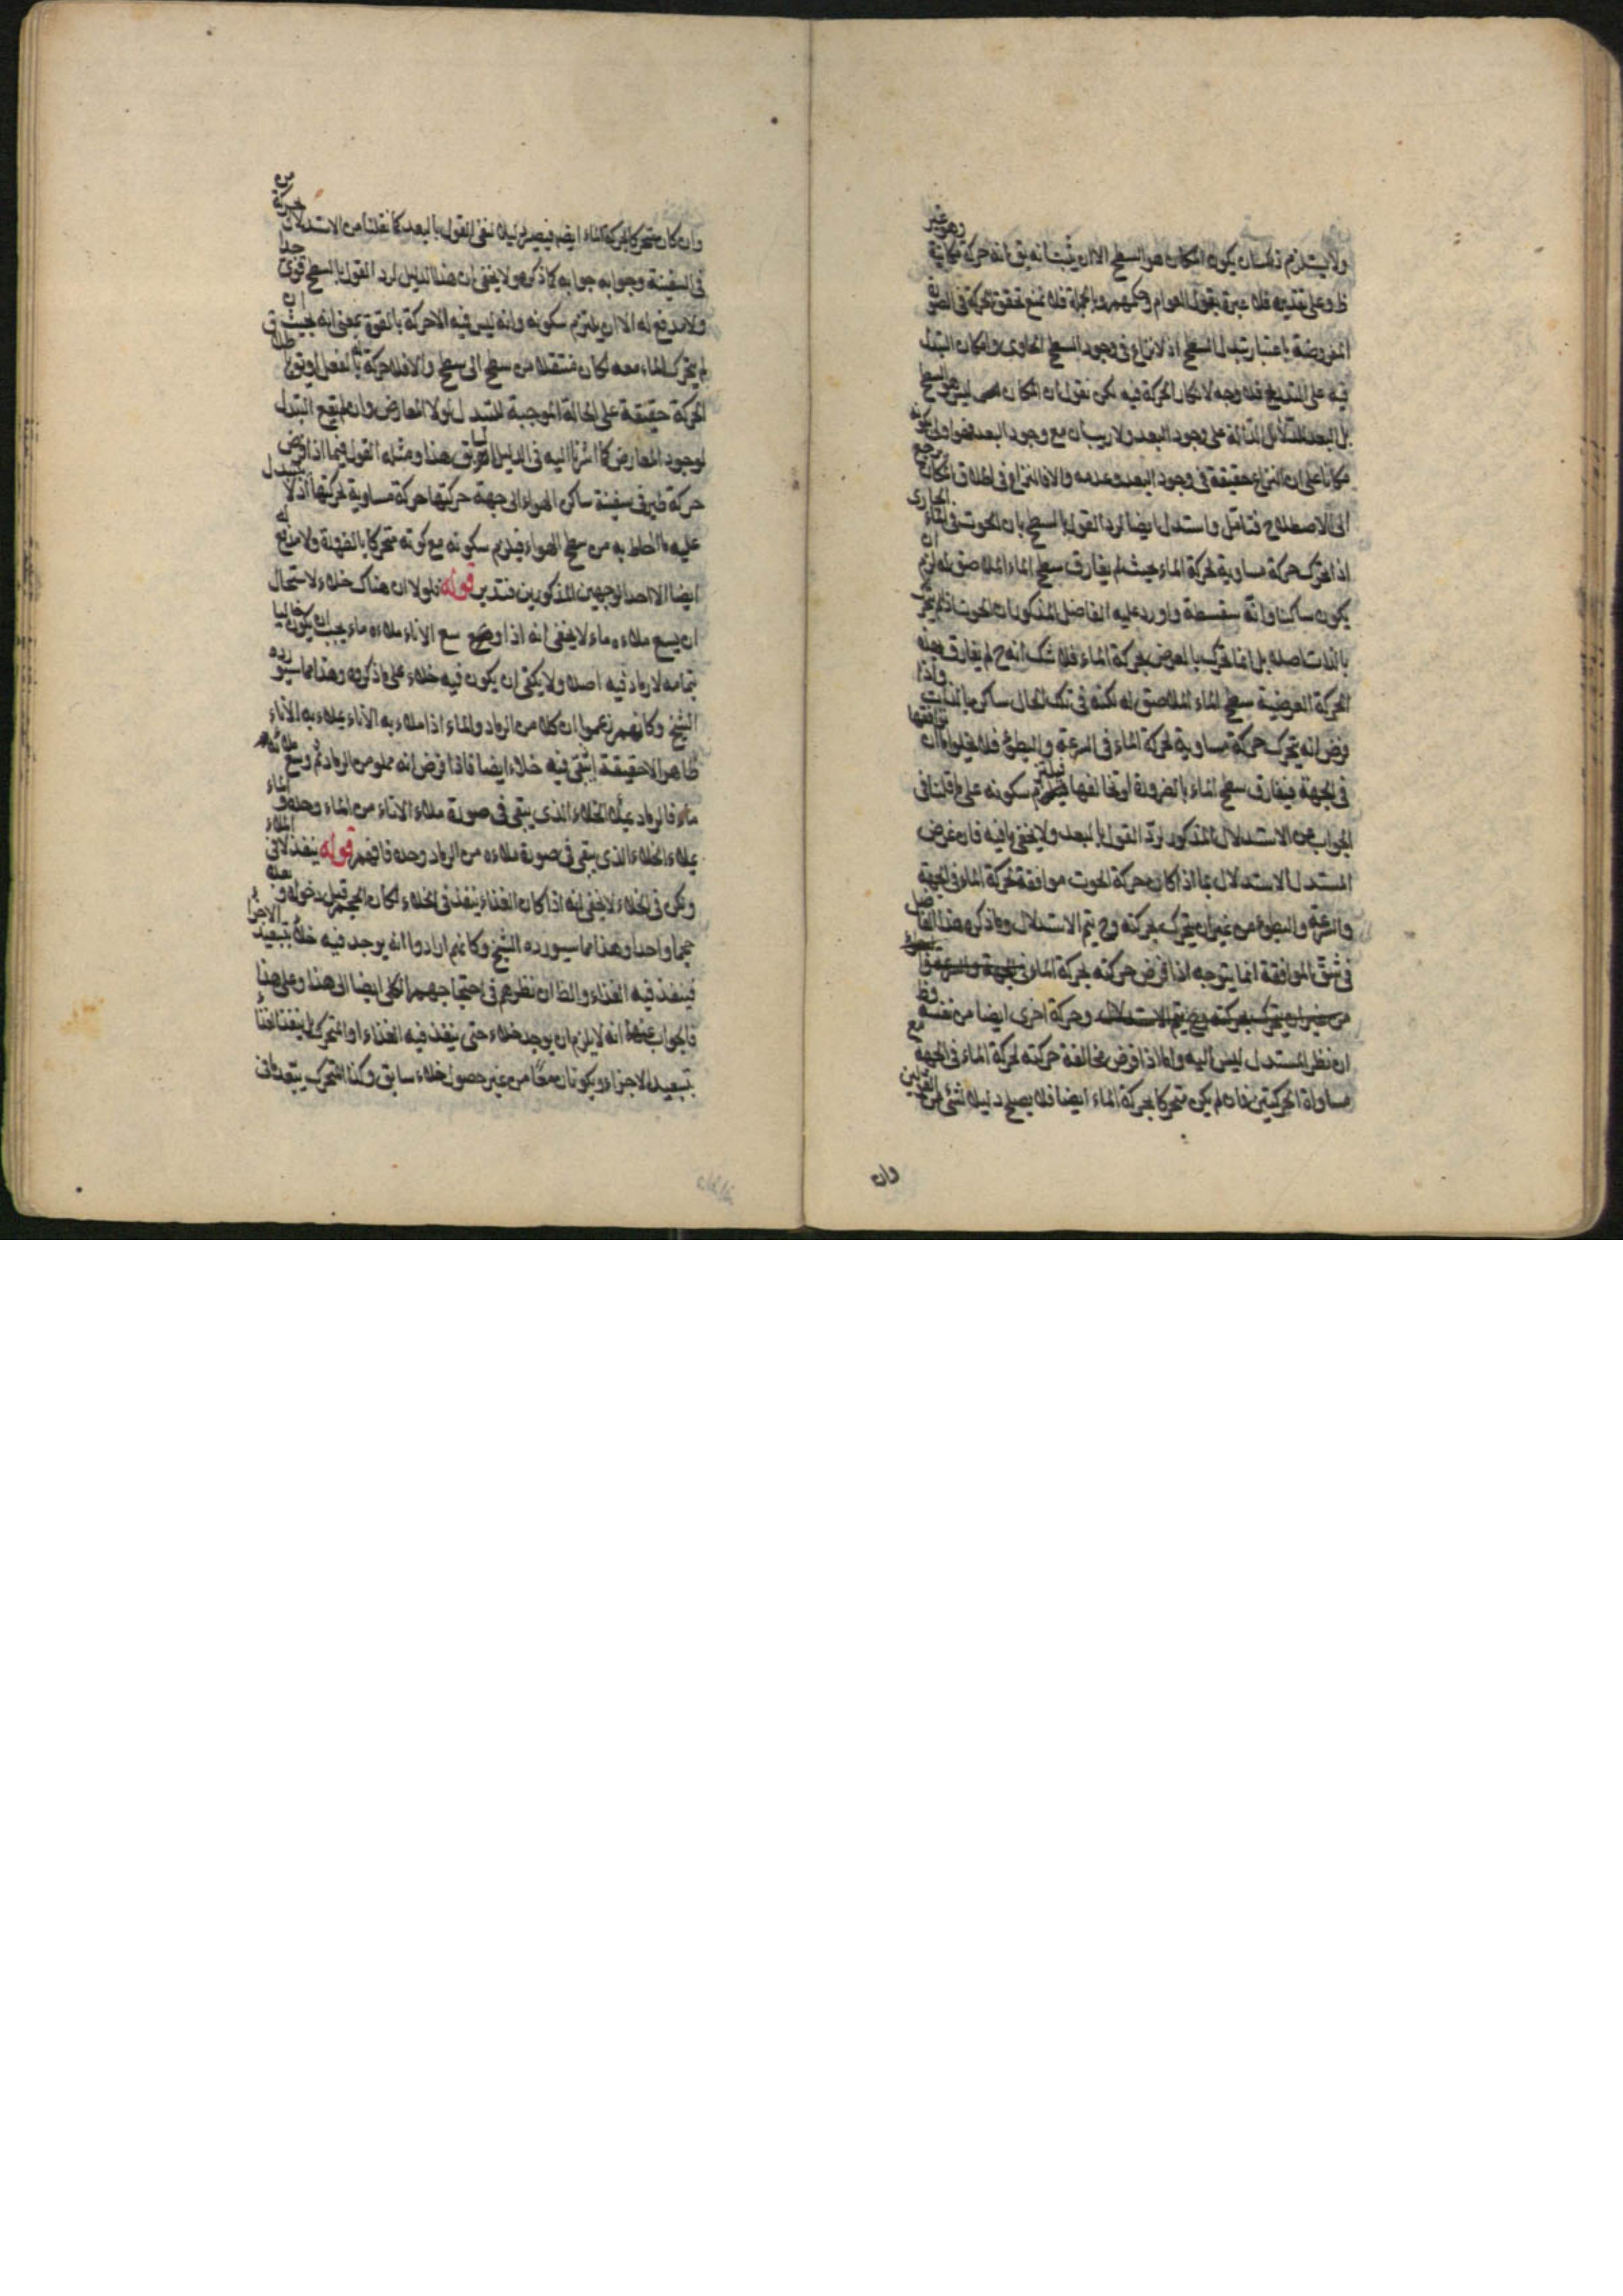 ولا يستلزم ذلك ان يكون المكان هو السطح الا ان يثبت انه يق انه حركة مكانية وهو غير
ظ وعلى تقديره فلا عبرة بقول العوام وحكمهم وبالجملة فلا نمنع تحقق الحركة فى الصورة
المفروضة باعتبار تبدل السطح اذ لا نزاع فى وجود السطح الحاوى وامكان التبدل
فيه على التدريج فلا وجه لانكار الحركة فيه لكن نقول ان المكان ليس هو السطح
بل البعد للدلائل الدالة على وجود البعد ولا ريب ان مع وجود البعد فهو اولى بكونه
مكانا على ان النزاع حقيقة فى وجود البعد وعدمه والا فالنزاع فى اطلاق المكان يرجع
الى الاصطلاح فتامل واستدل ايضا لرد القول بالسطح بان الحوت فى الماء الجارى
اذا تحرك حركة مساوية لحركة الماء حيث لم يفارق سطح الماء الملاصق له لزم ان
يكون ساكنا وانه سفسطة واورد عليه الفاضل المذكور ان الحوت اذا لم يتحرك
بالذات اصلا بل انما تحرك بالعرض بحركة الماء فلا شك انه ح لم يفارق بهذه
الحركة العرضية سطح الماء الملاصق له لكنه فى تلك الحال ساكن بالذات واذا
فرض انه يتحرك حركة مساوية لحركة الماء فى السرعة والبطوء فلا يخلو اما ان توافقها
فى الجهة فيفارق سطح الماء بالضرورة او تخالفها فيلتزم سكونه على ما قلنا فى
الجواب عن الاستدلال المذكور لرد القول بالبعد ولا يخفى ما فيه فان غرض
المستدل الاستدلال بما اذا كان حركة الحوت موافقة لحركة الماء فى الجهة
والسرعة والبطوء من غير ان يتحرك بحركته وح يتم الاستدلال وما ذكره هذا الفاضل
فى شق الموافقة انما يتوجه اذا فرض حركته بحركة الماء
وحركة اخرى ايضا من نفسه وظ
ان نظر المستدل ليس اليه واما اذا فرض مخالفة حركته لحركة الماء فى الجهة مع
مساواة الحركتين فان لم يكن متحركا بحركة الماء ايضا فلا يصلح دليلا لشئ من القولين
وان
وان كان متحركا بحركة الماء ايضا فيصير دليلا لنفى القول بالبعد كما نقلنا من الاستدلال من حركة
فى السفينة وجوابه جوابه كما ذكره ولا يخفى ان هذا الدليل لرد القول بالسطح قوى جدا
ولا مدفع له الا ان يلتزم سكونه وانه ليس فيه الا حركة بالقوة بمعنى انه بحيث ان
لم يتحرك الماء معه لكان منتقلا من سطح الى سطح والا فلا حركة له بالفعل
الحركة حقيقة على الحالة الموجبة للتبدل لولا المعارض وان لم يقع التبدل
لوجود المعارض كما اشرنا اليه فى الدليل السابق هذا ومثله القول فيما اذا فرض
حركة طير فى سفينة ساكن الهواء الى جهة حركتها حركة مساوية لحركتها اذ لا يتبدل
عليه ما احاط به من سطح الهواء فيلزم سكونه مع كونه متحركا بالضرورة ولا مدفع له
ايضا الا احد الوجهين المذكورين فتدبر قوله فلولا ان هناك خلاء لاستحال
ان يسع ملاءه ماء لا يخفى انه اذا وسع الاناء ملاءه ماء يجب ان يكون خاليا
بتمامه لا رماد فيه اصلا ولا يكفى ان يكون فيه خلاء على ما ذكروه وهذا مما سيورده
الشيخ وكانهم زعموا ان كلا من الرماد والماء اذا ملاء به الاناء يملاء به الاناء
ظاهرا لا حقيقة اذ يبقى فيه خلاء ايضا فاذا فرض انه مملو من الرماد ثم وسع ملائه
ماء فالرماد يملاء الخلاء الذى يبقى فى صورة ملاء الاناء من الماء وحده والماء
يملاء الخلاء الذى يبقى فى صورة ملاءه من الرماد وحده فافهم قوله ينفذ لا فى الملاء
ولكن فى الخلاء لا يخفى انه اذا كان الغذاء ينفذ فى الخلاء لكان الحجم قبل دخوله وبعده
حجما واحدا وهذا مما سيورده الشيخ وكانهم ارادوا انه يوجد فيه خلاء بتبعيد الاجزاء
فينفذ فيه الغذاء والظ ان نظرهم فى احتجاجهم الكلى ايضا الى هذا وعلى هذا
فالجواب عنها انه لا يلزم ان يوجد خلاء حتى ينفذ فيه الغذاء او المتحرك بل ينفذ الغذاء
بتبعيده الاجزاء ويكونان معا من غير حصول خلاء سابق وكذا المتحرك يتبعد